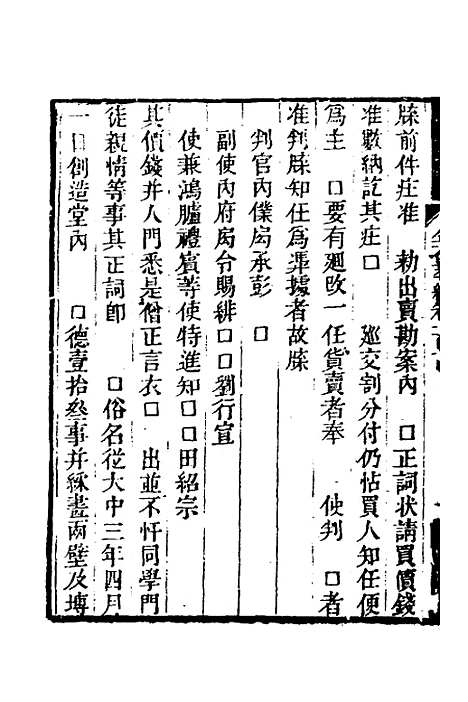 牒前件庄准　勅出賣勘案內　□正詞狀請買價錢
准數納訖其庄□　巡交割分付仍帖買人知任便
爲主　□要有廻改一任貨賣者奉　使判　□者
准判牒知任爲凴據者故牒
判官內僕局承彭　□
副使內府局令賜緋□□劉行宣
使兼鴻臚禮賓等使特進知□□田紹宗
其價錢并人門悉是僧正言衣□　出並不忓同學門
徒親情等事其正詞即　□俗名從大中三年四月
一日創造堂內　□德壹拾叄事并綵畫兩壁及塼